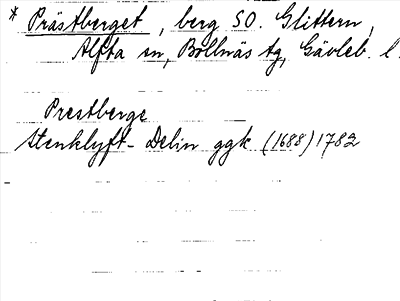 * Prästberget, berg SO. Glittern,
Alfta sn, Bollnäs tg, Gävleb. l.
Prestberge
Stenklyft- Delin ggk (1688) 1782